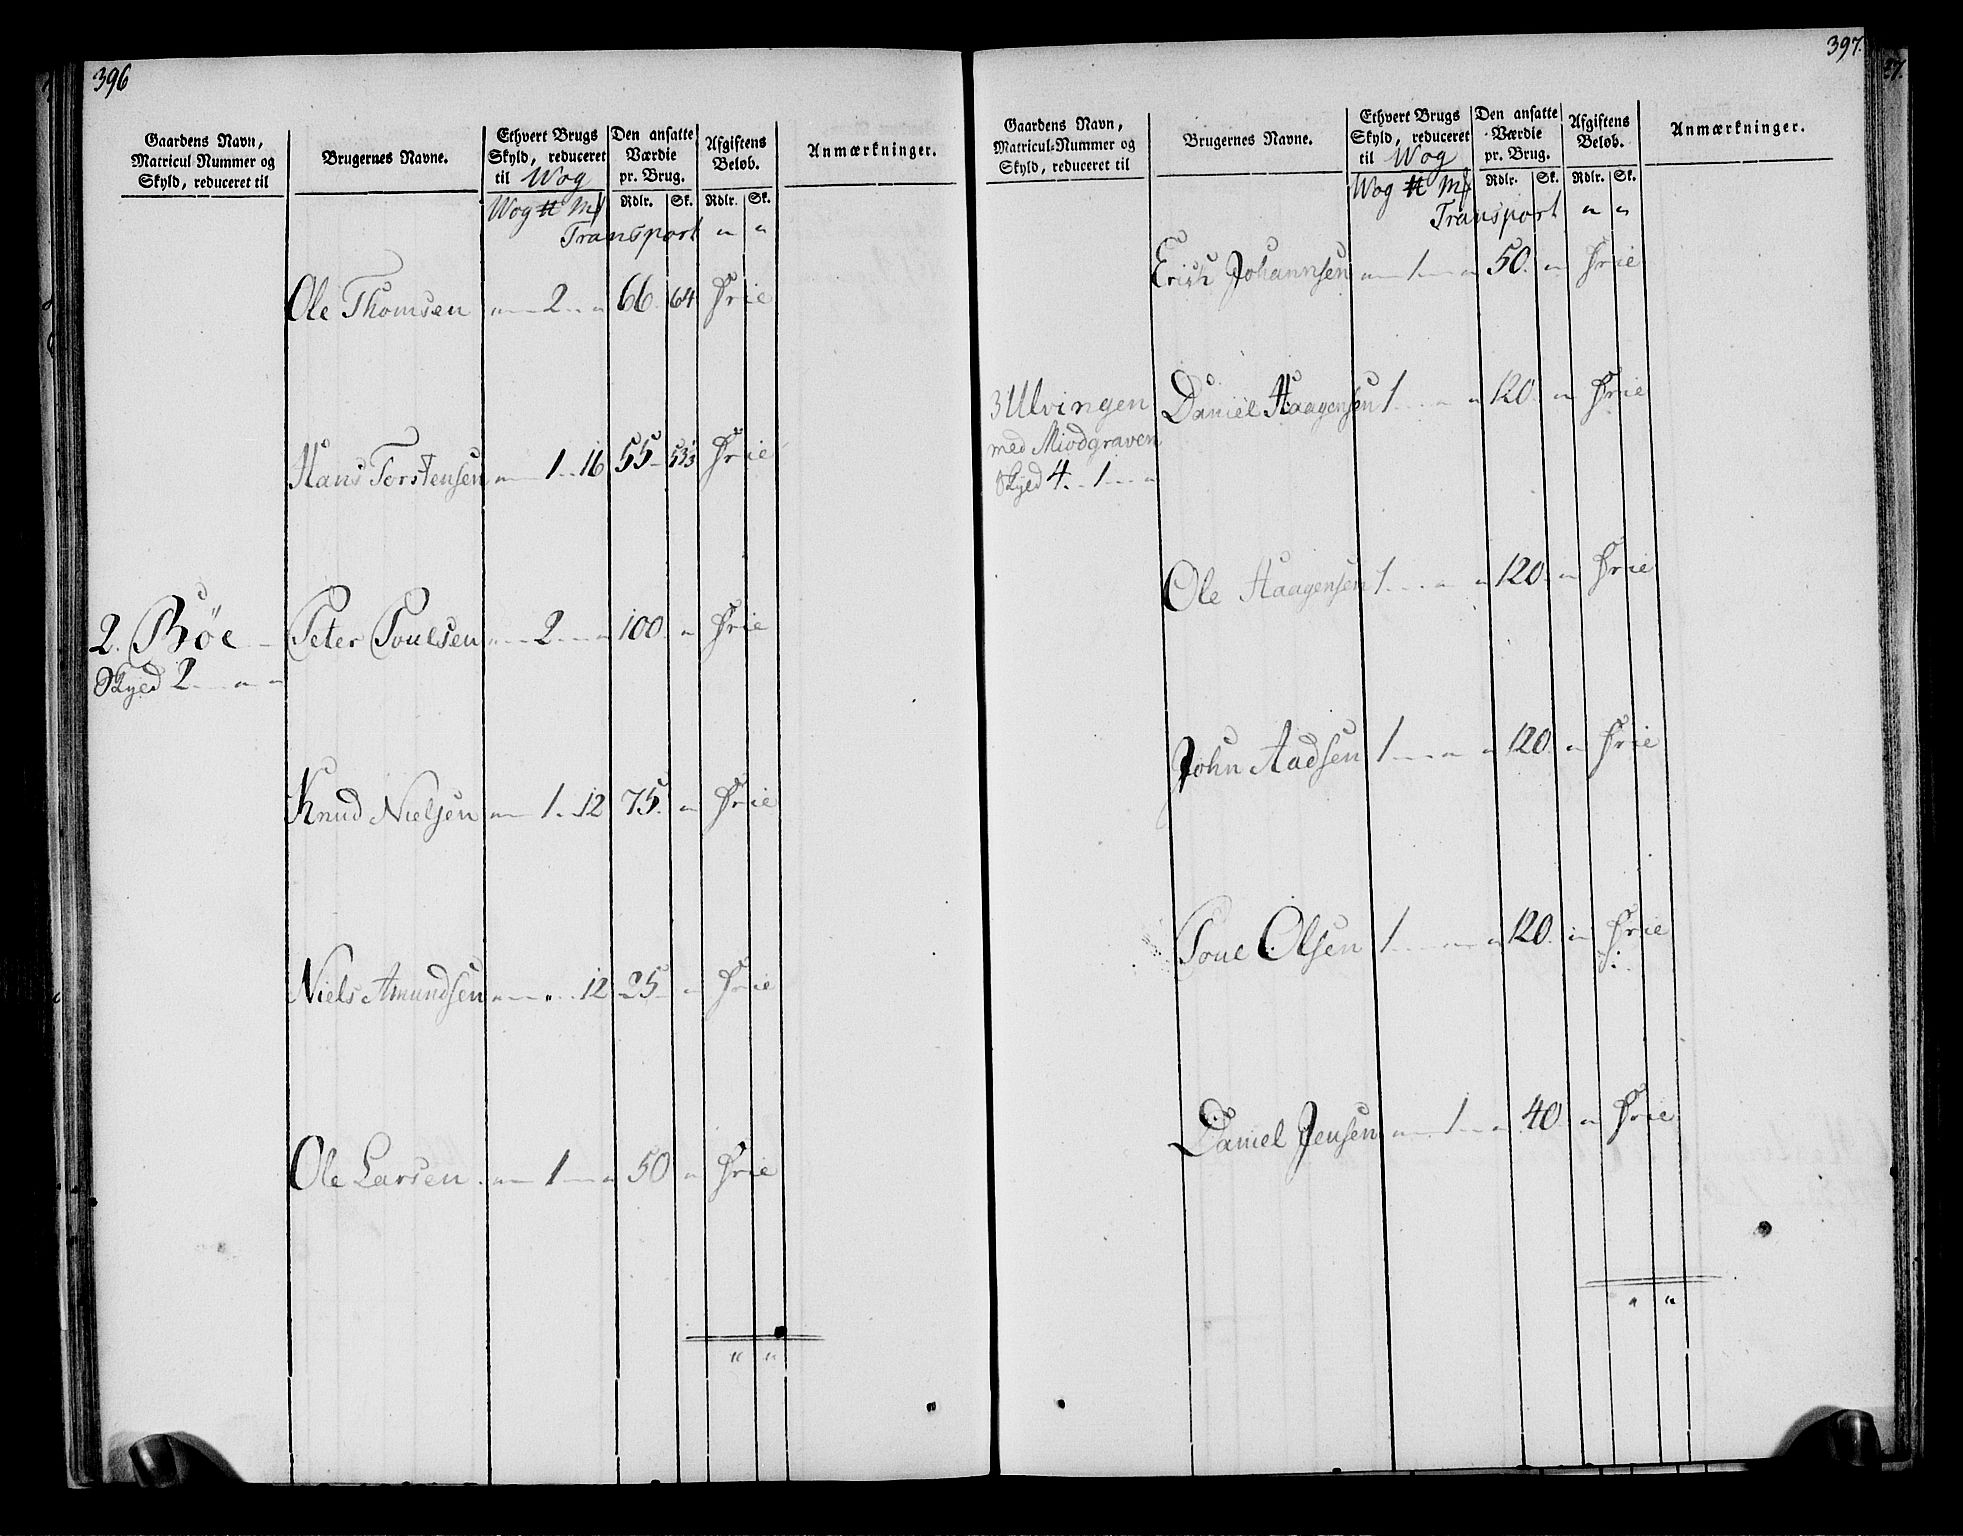 396
Gaardens Navn, Matricul-Nummer og Skyld, reduceret til
Brugernes Navne.
Ethvert Brugs Skyld, reduceret til Wog
Den ansatte Værdie pr. Brug.
Afgiftens Beløb.
Anmærkninger.
Wog ℔ Mk Rdlr. Sk. Rdlr. Sk.
Transport " "
Ole Thomsen " 2 " 66. 64 Frie
Hans Torstensen " 1 16 55 53⅓ Frie
2. Bøe Peter Poulsen " 2 " 100 " Frie
Skyld 2 " "
Knud Nielsen " 1 12 75. " Frie
Niels Amundsen " " 12 25 " Frie
Ole Larsen " 1 " 50 " Frie
" "
397.
Gaardens Navn, Matricul-Nummer og Skyld, reduceret til
Brugernes Navne.
Ethvert Brugs Skyld, reduceret til Wog
Den ansatte Værdie pr. Brug.
Afgiftens Beløb.
Anmærkninger.
Wog ℔ Mk Rdlr. Sk. Rdlr. Sk.
Transport " "
Erich Johannsen " 1 " 50. " Frie
3 Ulvingen Daniel Haagensen 1 " " 120. " Frie
med Miodgraven
Skyld 4 1 "
Ole Haagensen 1 " " 120. " Frie
John Aadsen 1 " " 120. " Frie
Poul Olsen 1 " " 120. " Frie
Daniel Jensen " 1 " 40. " Frie
" "